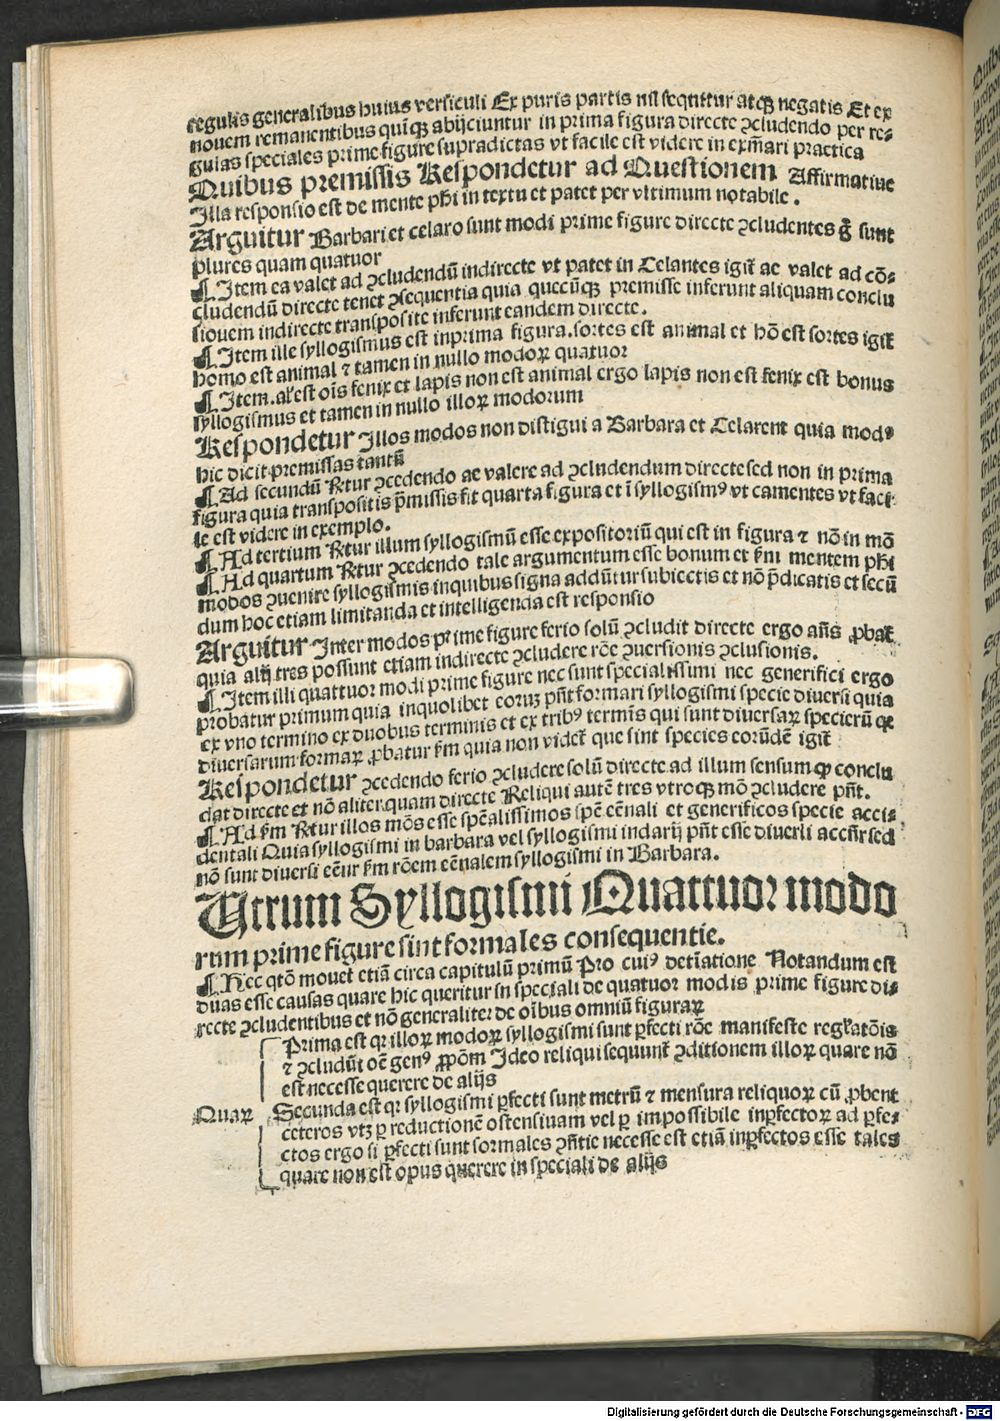 regulis generalibus huius versiculi Ex puris partis nil seqnitur atqꝫ negatis Et ex
nouem remanentibus quīqꝫ abijciuntur in prima figura directe ꝯcludendo per re-
gulas speciales prime figure supradictas vt facile est videre in exm̄ari practica
Quibus premissis Respondetur ad Questionem Affirmatiue
Illa responsio est de mente phi in textu et patet per vltimum notabile.
Arguitur Barbari et celaro sunt modi prime figure directe ꝯcludentes g̊ sunt
plures quam quatuor
¶ Item ea valet ad ꝯcludendū indirecte vt patet in Celantes igit̄ ae valet ad cō-
cludendū directe tenet ꝯsequentia quia quecūqꝫ premisse inferunt aliquam conclu
sionem indirecte transposite inferunt eandem directe.
¶ Item ille syllogismus est inprima figura. sortes est animal et hō est sortes igit̄
homo est animal ⁊ tamen in nullo modoꝝ quatuor
¶ Item. al̄ est oīs fenix et lapis non est animal ergo lapis non est fenix est bonus
syllogismus et tamen in nullo illoꝝ modorum
Respondetur Illos modos non distigui a Barbara et Celarent quia modꝰ
hic dicit premissas tantū
¶ Ad secundū R̄tur ꝯcedendo ae valere ad ꝯclndendum directe sed non in prima
figura quia transpositis p̄missis fit quarta figura et ī syllogismꝰ vt camentes vt faci-
le est videre in exemplo.
¶ Ad tertium R̄tur illum syllogismū esse expositoriū qui est in figura ⁊ nō in mō
¶ Ad quartum R̄tur ꝯcedendo tale argumentum esse bonum et s̄m mentem phi
modos ꝯuenire syllogismis inquibus signa addūtur subiectis et nō p̄dicatis et secū
dum hoc etiam limitanda et intelligenda est responsio
Arguitur Inter modos prime figure ferio solū ꝯcludit directe ergo an̄s ꝓbat̄
quia alij tres possunt etiam indirecte ꝯcludere rōe ꝯuersionis ꝯclusionis.
¶ Item illi quattuor modi prime figure nec sunt specialissimi nec generifici ergo
probatur primum quia inquolibet eoruꝫ pn̄t formari syllogismi specie diuersi quia
ex vno termino ex duobus terminis et ex tribꝰ termīs qui sunt diuersaꝝ specierū qe
diuersarum formaꝝ ꝓbatur s̄m quia non videt̄ que sint species eorūdē igit̄
Respondetur ꝯcedendo ferio ꝯcludere solū directe ad illum sensum ꝙ conclu
dat directe et nō aliter quam directe Reliqui autē tres vtroqꝫ mō ꝯcludere pn̄t.
¶ Ad s̄m R̄tur illos mōs esse spēalissimos spē eēnali et generificos specie acci-
dentali Quia syllogismi in barbara vel syllogismi indarij pn̄t esse diuersi accn̄r sed
nō sunt diuersi eēnr s̄m rōem eēnalem syllogismi in Barbara.
Utrum Syllogismi Quattuor modo
rum prime figure sint formales consequentie.
¶ Hec qtō mouet etiā circa capitulū primū Pro cuiꝰ det̄iatione Notandum est
duas esse causas quare hic queritur in speciali de quatuor modis prime figure di-
recte ꝯcludentibus et nō generaliter de oībus omniū figuraꝝ
Prima est qꝛ illoꝝ modoꝝ syllogismi sunt ꝑfecti rōe manifeste regl̄atōis
⁊ ꝯcludūt oē genꝰ ꝓpōm Ideo reliqui sequunt̄ ꝯditionem illoꝝ quare nō
est necesse querere de alijs
Quaꝝ Secunda est qꝛ syllogismi ꝑfecti sunt metrū ⁊ mensura reliquoꝝ cū ꝓbent
ceteros vtꝫ ꝑ reductionē ostensiuam vel ꝑ impossibile inꝑfectoꝝ ad ꝑfe-
ctos ergo si ꝑfecti sunt formales ꝯn̄tie necesse est etiā inꝑfectos esse tales
quare non est opus querere in speciali de alijs
Digitalisierung gefördert durch die Deutsche Forschungsgemeinschaft - DFG